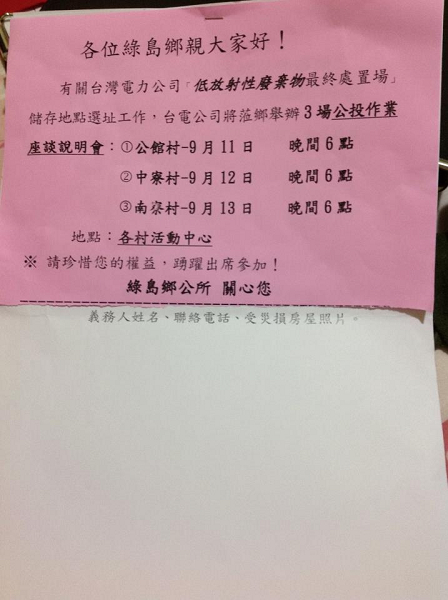 各位綠島鄉親大家好！
有關台灣電力公司「低放射性廢棄物最終處置場」
儲存地點選址工作，台電公司將蒞鄉舉辦3場公投作業
座談說明會：①公館村-9月11日 晚間6點
②中寮村-9月12日 晚間6點
③南寮村-9月13日 晚間6點
地點：各村活動中心
※ 請珍惜您的權益，踴躍出席參加！
綠島鄉公所 關心您
義務人姓名、聯絡電話、受災損房屋照片。